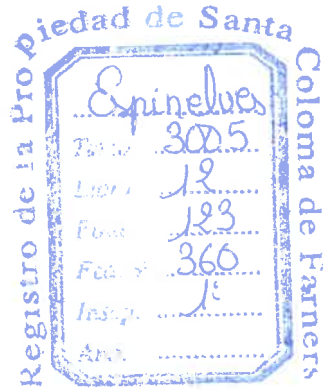 Registro de la Propiedad de Santa Coloma de Farners
Espinelves
Tomo 3005
Libro 12
Folio 123
Finca 360
Inscp. 1ª